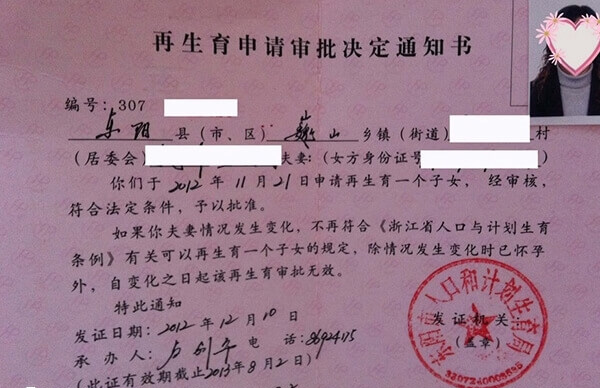 再生育申请审批决定通知书
编号：307
东阳县（市、区）巍山乡镇（街道）村
（居委会）夫妻：（女方身份证号）
你们于2012年11月21日申请再生育一个子女，经审核，
符合法定条件，予以批准。
如果你夫妻情况发生变化，不再符合《浙江省人口与计划生育
条例》有关可以再生育一个子女的规定，除情况发生变化时已怀孕
外，自变化之日起该再生育审批无效。
特此通知
发证机关：
发证日期：2012年12月10日
（盖章）
承办人：电话：86924115
（此证有效期截止2013年8月2日）
市人口和计划生育局